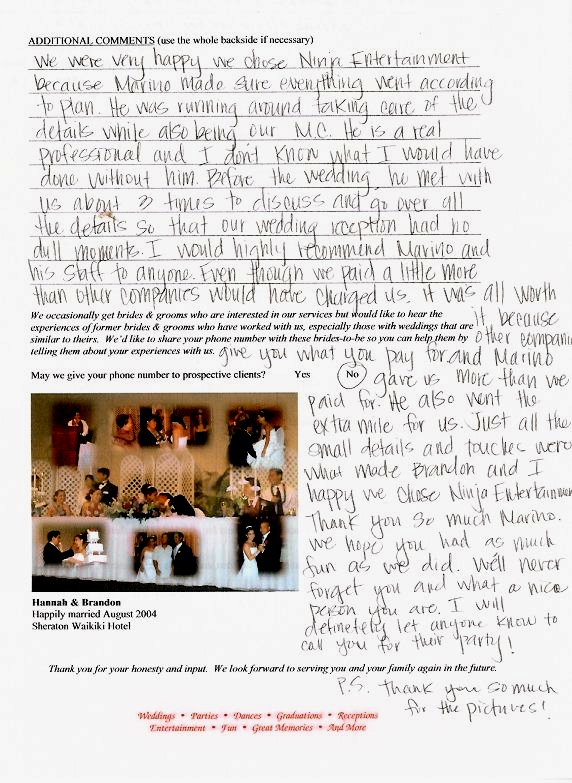 ADDITIONAL COMMENTS (use the whole backside if necessary)
We were very happy we chose Ninja Entertainment
because Marino made sure everything went according
to plan. He was running around taking care of the
details while also being our M.C. He is a real
professional and I don't know what I would have
done without him. Before the wedding he met with
us about 3 times to discuss and go over all
the details so that our wedding reception had no
dull moments. I would highly recommend Marino and
his staff to anyone. Even though we paid a little more
than other companies would have charged us. it was all worth
it, because
other companies
give you what you pay for and Marino
gave us more than we
paid for. He also went the
extra mile for us. Just all the
small details and touches were
what made Brandon and I
happy we chose Ninja Entertainment
Thank you so much Marino.
we hope you had as much
fun as we did. We'll never
forget you and what a nice
person you are. I will
definetely let anyone know to
call you for their party!
P.S. thank you so much
for the pictures!
We occasionally get brides & grooms who are interested in our services but would like to hear the
experiences of former brides & grooms who have worked with us, especially those with weddings that are
similar to theirs. We'd like to share your phone number with these brides-to-be so you can help them by
telling them about your experiences with us.
May we give your phone number to prospective clients? Yes No
Hannah & Brandon
Happily married August 2004
Sheraton Waikiki Hotel
Thank you for your honesty and input. We look forward to serving you and your family again in the future.
Weddings • Parties • Dances • Graduations • Receptions
Entertainment • Fun • Great Memories • And More